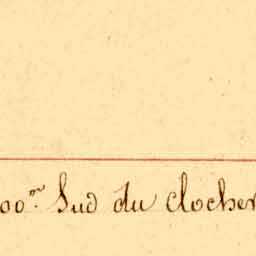 00.m Sud du clocher